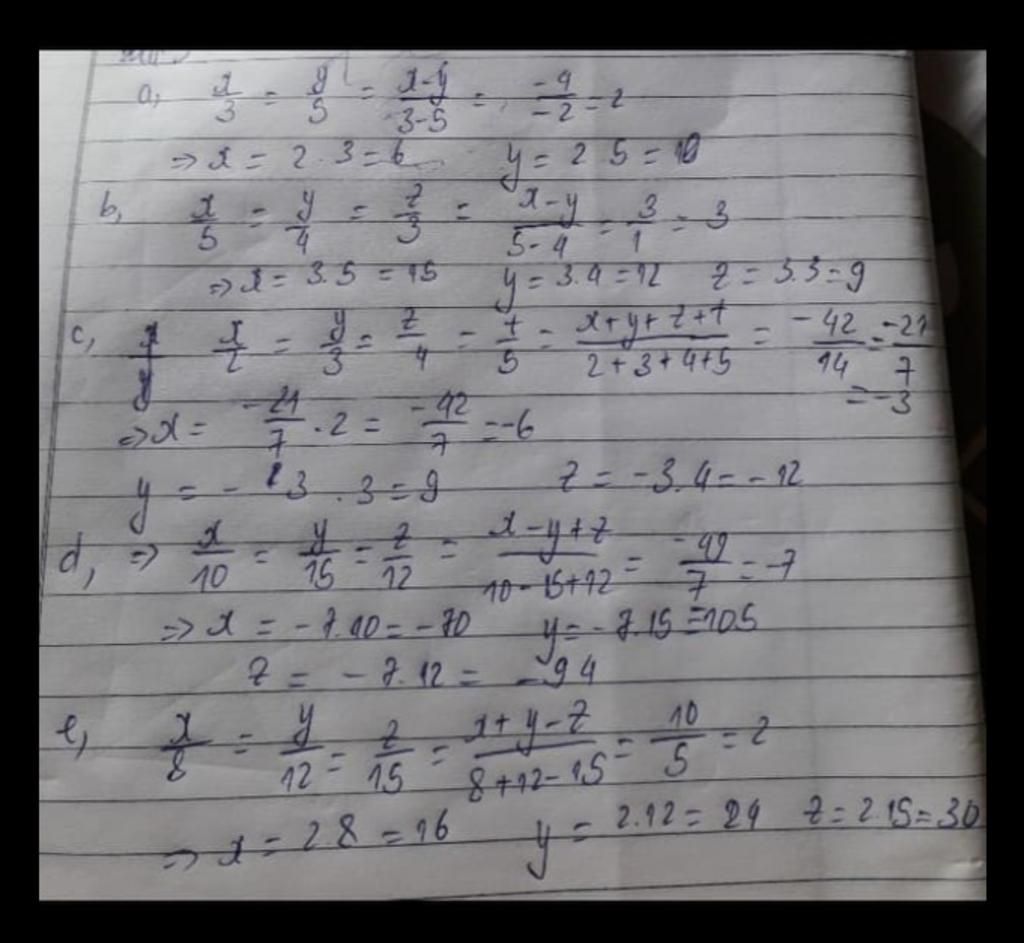 a, x/3 = y/5 = x-y/3-5 = -4/-2 = 2
=> x = 2 . 3 = 6 y = 2 5 = 10
b, x/5 = y/4 = z/3 = x-y/5-4 = 3/1 = 3
=> x = 3.5 = 15 y = 3.4 = 12 z = 3.3 = 9
c, x/2 = y/3 = z/4 = t/5 = x+y+z+t/2+3+4+5 = -42/14 = -21/7
= -3
=> x = -21/7 . 2 = -42/7 = -6
y = -3 . 3 = 9 z = -3.4 = -12
d, => x/10 = y/15 = z/12 = x-y+z/10-15+12 = -49/7 = -7
=> x = -7.10 = -70 y = -7.15 = 105
z = -7.12 = -94
e, x/8 = y/12 = z/15 = x+y-z/8+12-15 = 10/5 = 2
=> x = 2.8 = 16 y = 2.12 = 24 z = 2.15 = 30